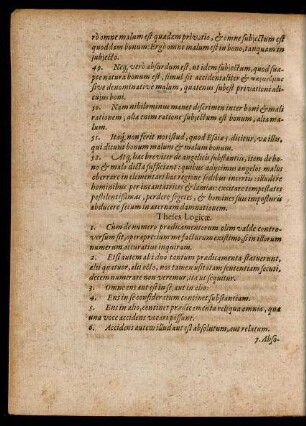 rò omne malum est quædam privatio, & omne subjectum est
quoddam bonum: Ergo omne malum est in bono, tanquam in
subjecto.
49. Neq; verò absurdum est, ut idem subjectum, quod sua-
pte natura bonum est, simul sit accidentaliter &
sive denominativè malum, quatenus subest privationi ali-
cui boni.
50. Nam nihilominus manet discrimen inter boni & mali
rationem, alia enim ratione subjectum est bonum, alia ma-
lum.
51. Itaq; non ferit nos istud, quod Esaiæ 5. dicitur, væ illis,
qui dicunt bonum malum & malum bonum.
52. Atq; hæc breviter de angelicis substantiis, item de bo-
no & malo dicta sufficiant: quibus adjicimus angelos malos
aberrare in elementari hac regione fidibus imò illudere
hominibus per incantatrices & lamias: excitare tempestates
pestilentissimas, perdere segetes, & homines suis imposturis
abducere secum in æternam damnationem.
Theses Logicæ.
1. Cum de numero prædicamentorum olim valdè contro-
versum sit, operæprecium me facturum existimo, si in illorum
numerum accuratius inquiram.
2. Etsi autem alii duo tantum prædicamenta statuerunt,
alii quatuor, alii octo, nos tamen usitatam sententiam secuti,
decem numerare non veremur, ac sic sequitur.
3. Omne ens aut est in se, aut in alio:
4. Ens in se consideratum continet substantiam.
5. Ens in alio, continet prædicamenta reliqua omnia, quæ
una voce accidens vocari possunt.
6. Accidens autem illud aut est absolutum, aut relatum.
7. Abso-